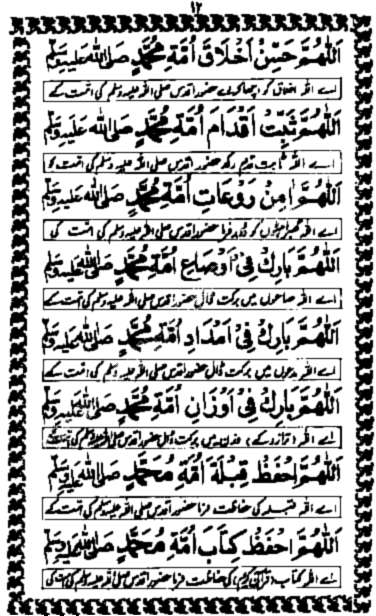 ١٢
اَللّٰهُمَّ حَسِّنْ اَخْلَاقَ اُمَّةِ مُحَمَّدٍ صَلَّى اللّٰهُ عَلَيْهِ وَسَلَّمَ
اے اللہ اخلاق کو اچھا کیجئے حضور اقدس صلی اللہ علیہ وسلم کی امت کے
اَللّٰهُمَّ ثَبِّتْ اَقْدَامَ اُمَّةِ مُحَمَّدٍ صَلَّى اللّٰهُ عَلَيْهِ وَسَلَّمَ
اے اللہ ثابت قدم رکھ حضور اقدس صلی اللہ علیہ وسلم کی امت کو
اَللّٰهُمَّ اٰمِنْ رَوْعَاتِ اُمَّةِ مُحَمَّدٍ صَلَّى اللّٰهُ عَلَيْهِ وَسَلَّمَ
اے اللہ گھبراہٹوں کو فرما حضور اقدس صلی اللہ علیہ وسلم کی امت کی
اَللّٰهُمَّ بَارِكْ فِىْ اَوْصَاعِ اُمَّةِ مُحَمَّدٍ صَلَّى اللّٰهُ عَلَيْهِ وَسَلَّمَ
اے اللہ صاعوں میں برکت ڈال حضور اقدس صلی اللہ علیہ وسلم کی امت کے
اَللّٰهُمَّ بَارِكْ فِىْ اَمْدَادِ اُمَّةِ مُحَمَّدٍ صَلَّى اللّٰهُ عَلَيْهِ وَسَلَّمَ
اے اللہ مدوں میں برکت ڈال حضور اقدس صلی اللہ علیہ وسلم کی امت کے
اَللّٰهُمَّ بَارِكْ فِىْ اَوْزَانِ اُمَّةِ مُحَمَّدٍ صَلَّى اللّٰهُ عَلَيْهِ وَسَلَّمَ
اے اللہ (ترازو کے) وزن میں برکت ڈال حضور اقدس صلی اللہ علیہ وسلم کی امت
اَللّٰهُمَّ احْفَظْ قِبْلَةَ اُمَّةِ مُحَمَّدٍ صَلَّى اللّٰهُ عَلَيْهِ وَسَلَّمَ
اے اللہ قبلہ کی حفاظت فرما حضور اقدس صلی اللہ علیہ وسلم کی امت کے
اَللّٰهُمَّ احْفَظْ كِتَابَ اُمَّةِ مُحَمَّدٍ صَلَّى اللّٰهُ عَلَيْهِ وَسَلَّمَ
اے اللہ کتاب (قرآن کریم) کی حفاظت فرما حضور اقدس صلی اللہ علیہ وسلم کی امت کی